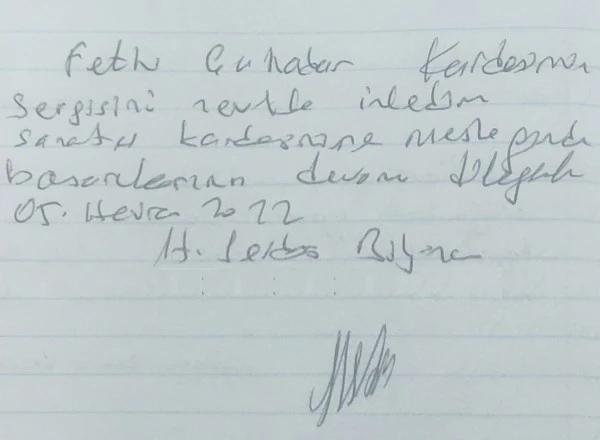 Fethi Çuhadar Kardeşimin
sergisini zevkle izledim
sanatçı kardeşimine mesleğinde
başarılarının devamı dileğiyle
05. Haziran 2022
H. Serdar